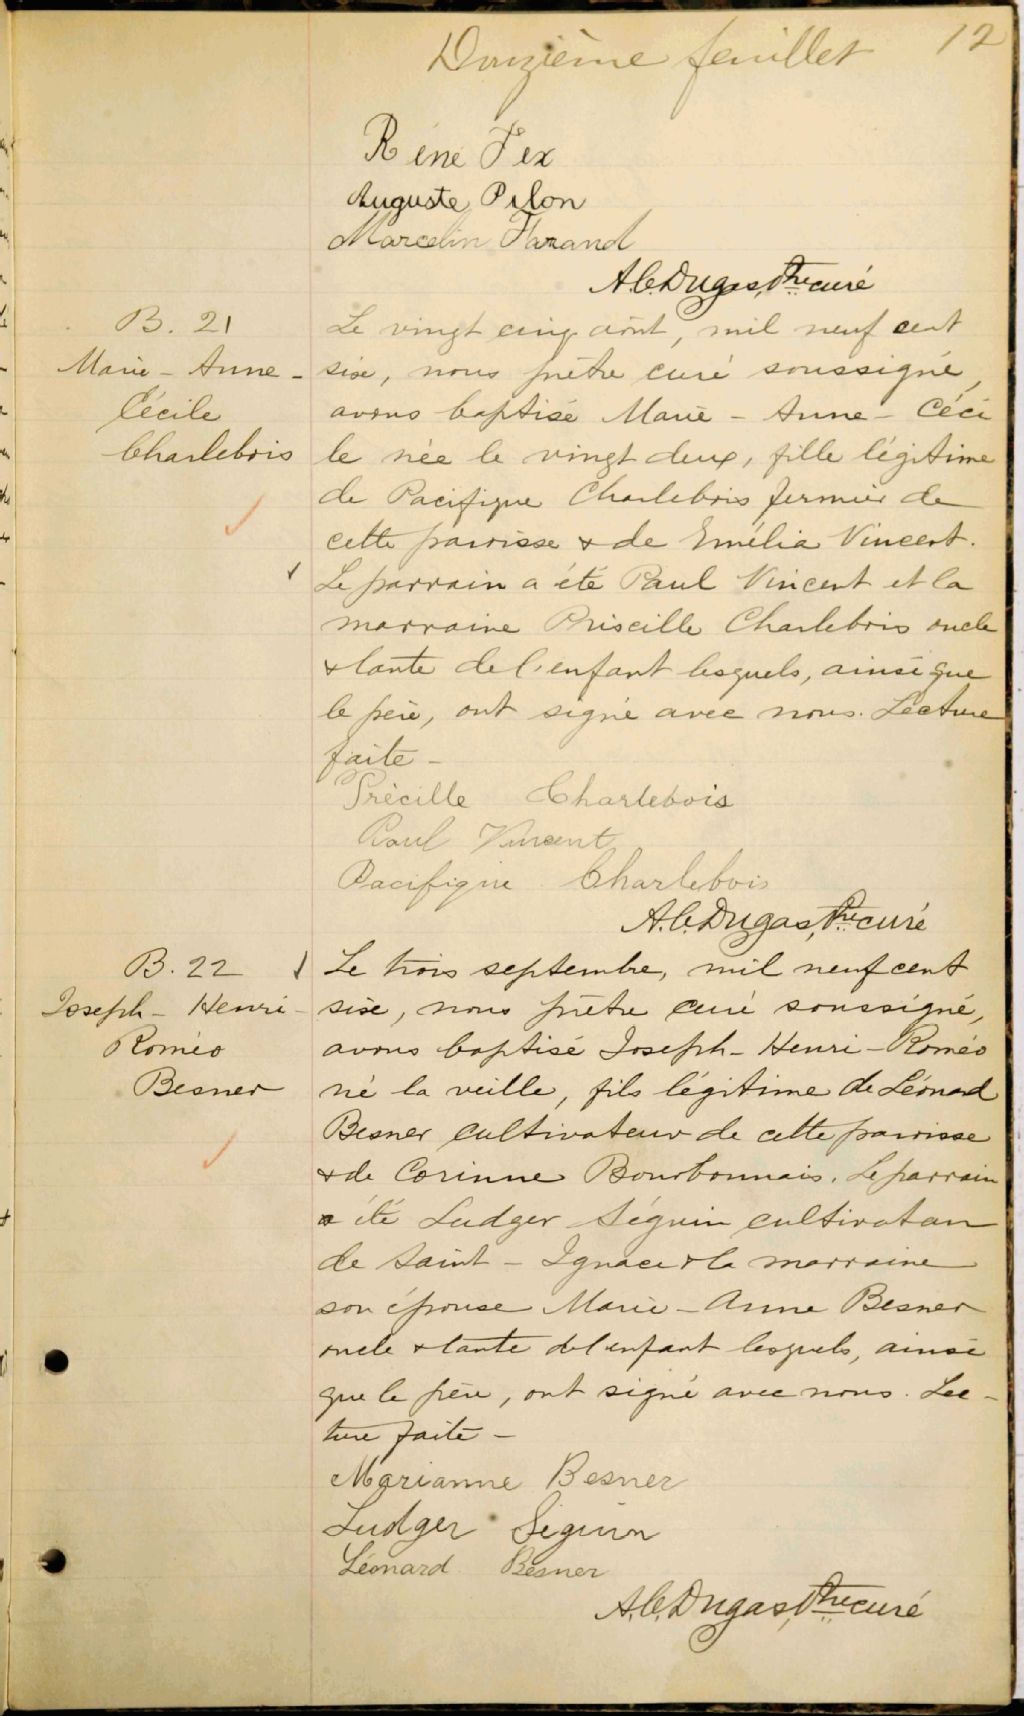 Douzième feuillet 12
Réné Fex
Auguste Pilon
Marcelin Farand
A.C. Dugas, Ptre curé
B. 21
Marie - Anne -
Cécile
Charlebois
Le vingt cinq août, mil neuf cent
six, nous prêtre curé soussigné,
avons baptisé Marie - Anne - Céci
le née le vingt deux, fille légitime
de Pacifique Charlebois fermier de
cette paroisse & de Emélia Vincent.
Le parrain a été Paul Vincent et la
marraine Priscille Charlebois oncle
& tante de l'enfant lesquels, ainsi que
le père, ont signé avec nous. Lecture
faite -
Précille Charlebois
Paul Vincent
Pacifique Charlebois
A.C. Dugas, Ptre curé
B. 22
Joseph - Henri -
Roméo
Besner
Le trois septembre, mil neuf cent
six, nous prêtre curé soussigné,
avons baptisé Joseph - Henri - Roméo
né la veille, fils légitime de Léonard
Besner cultivateur de cette paroisse
& de Corinne Bourbonnais. Le parrain
a été Ludger Séguin cultivateur
de Saint - Ignace & la marraine
son épouse Marie - Anne Besner
oncle & tante de l'enfant lesquels, ainsi
que le père, ont signé avec nous. Lec -
ture faite -
Marianne Besner
Ludger Séguin
Léonard Besner
A.C. Dugas, Ptre curé